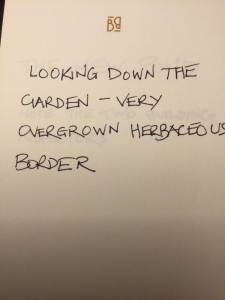 LOOKING DOWN THE
GARDEN - VERY
OVERGROWN HERBACEOUS
BORDER